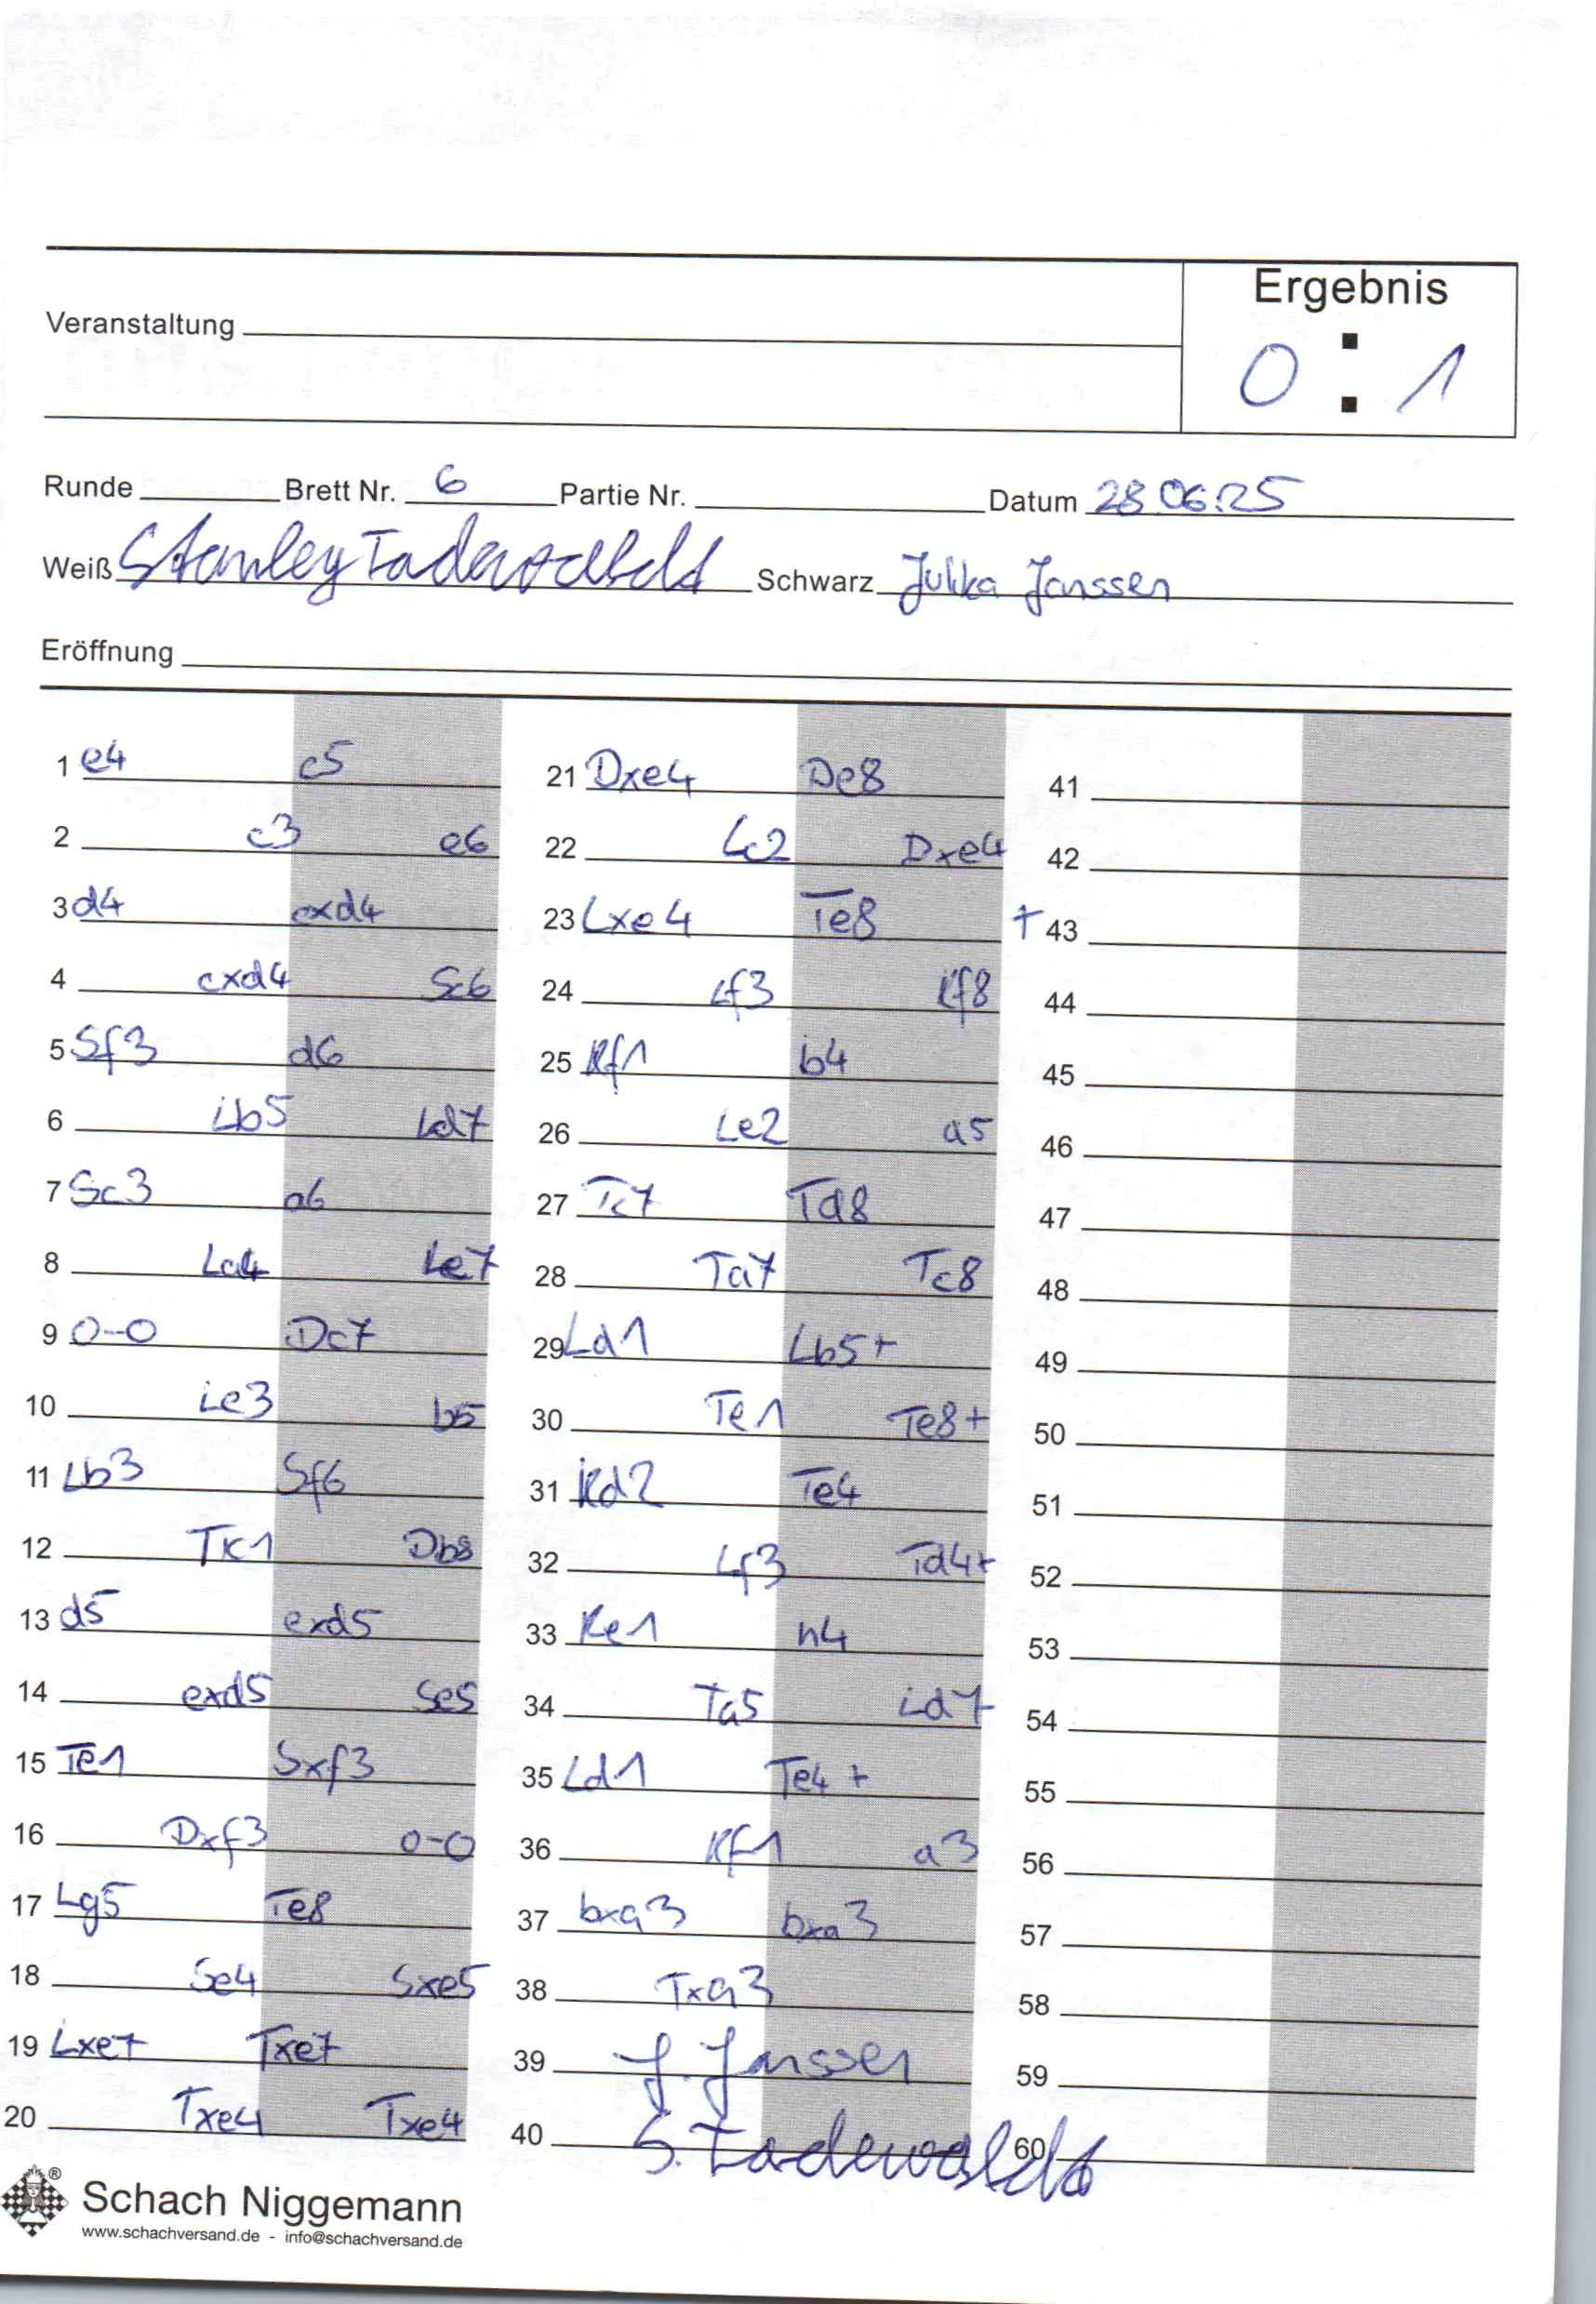 Ergebnis
Veranstaltung
0 : 1
Runde Brett Nr. 6 Partie Nr. Datum 28.06.25
Weiß Stanley Schwarz Julika Janssen
Eröffnung
1 e4 c5
2 c3 e6
3 d4 cxd4
4 cxd4 Sc6
5 Sf3 d6
6 Lb5 Ld7
7 Sc3 a6
8 La4 Le7
9 0-0 Dc7
10 Le3 b5
11 Lb3 Sf6
12 Tc1 Db8
13 d5 exd5
14 exd5 Se5
15 Te1 Sxf3
16 Dxf3 0-0
17 Lg5 Te8
18 Se4 Sxe5
19 Lxe7 Txe7
20 Txe4 Txe4
21 Dxe4 De8
22 Lc2 Dxe4
23 Lxe4 Te8 +
24 Lf3 Kf8
25 Kf1 b4
26 Le2 a5
27 Tc7 Td8
28 Ta7 Tc8
29 Ld1 Lb5+
30 Te1 Te8+
31 Kd2 Te4
32 Lf3 Td4+
33 Ke1 h4
34 Ta5 Ld7
35 Ld1 Te4+
36 Kf1 a3
37 bxa3 bxa3
38 Txa3
39 J. Janssen
40 S. Tadewaldt
41
42
43
44
45
46
47
48
49
50
51
52
53
54
55
56
57
58
59
60
® Schach Niggemann
www.schachversand.de - info@schachversand.de